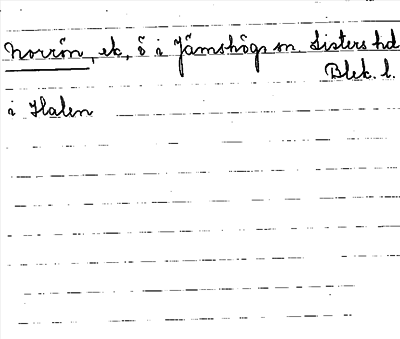 Norrön, ek, ö i Jämshögs sn. Listers hd
Blek. l.
i Halen